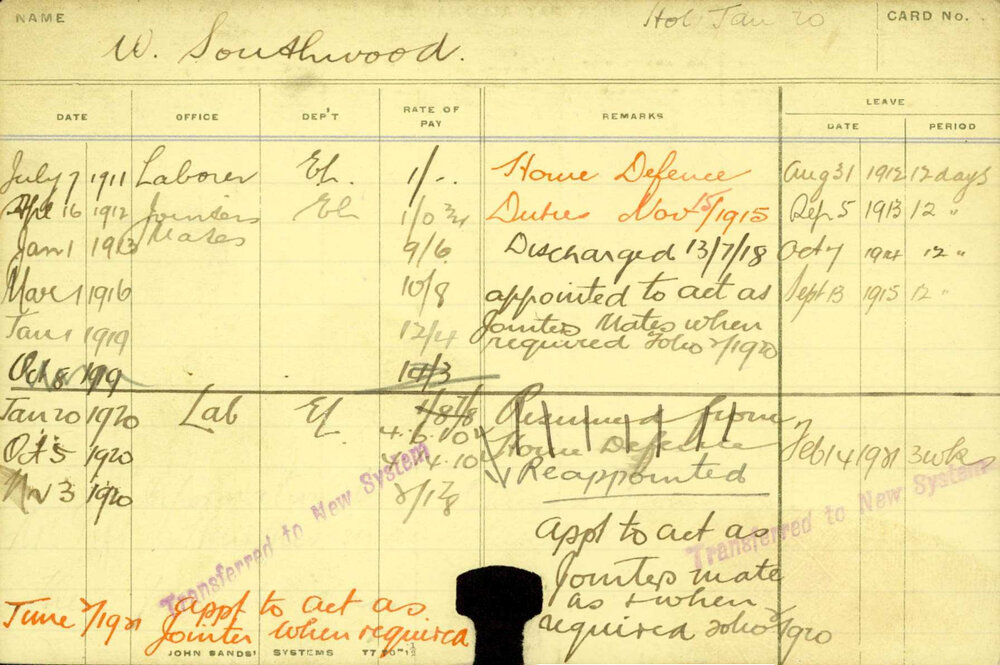 NAME
Hol Jan 20
CARD No.
W. Southwood.
DATE OFFICE DEP'T RATE OF PAY REMARKS LEAVE
DATE PERIOD
July 7 1911 Laborer El. 1/-. Home Defence Aug 31 1912 12 days
16 1912 Jointers El 1/0 3/4 Duties Nov 15/1915 Sep 5 1913 12 "
Mates
Jan 1 1913 9/6 Discharged 13/7/18 Oct 7 1914 12 "
Mar 1 1916 10/8 appointed to act as Sept 13 1915 12 "
Jan 1 1919 12/4 Jointers Mates when
required
Oct 8 1919
Jan 20 1920 Lab El. Resumed from
Feb 14 1921 3 wks
Oct 5 1920 Home Defence
Reappointed
Nov 3 1920
Transferred to New System
Transferred to New System
appt to act as
Jointers mate
as & when
required
June 1921 appt to act as
Jointer when required
JOHN SANDS' SYSTEMS